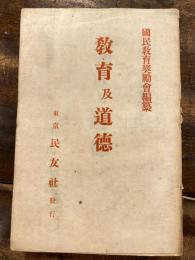 國民教育奬勵會編纂
教育及道德
東京 民友社 發行